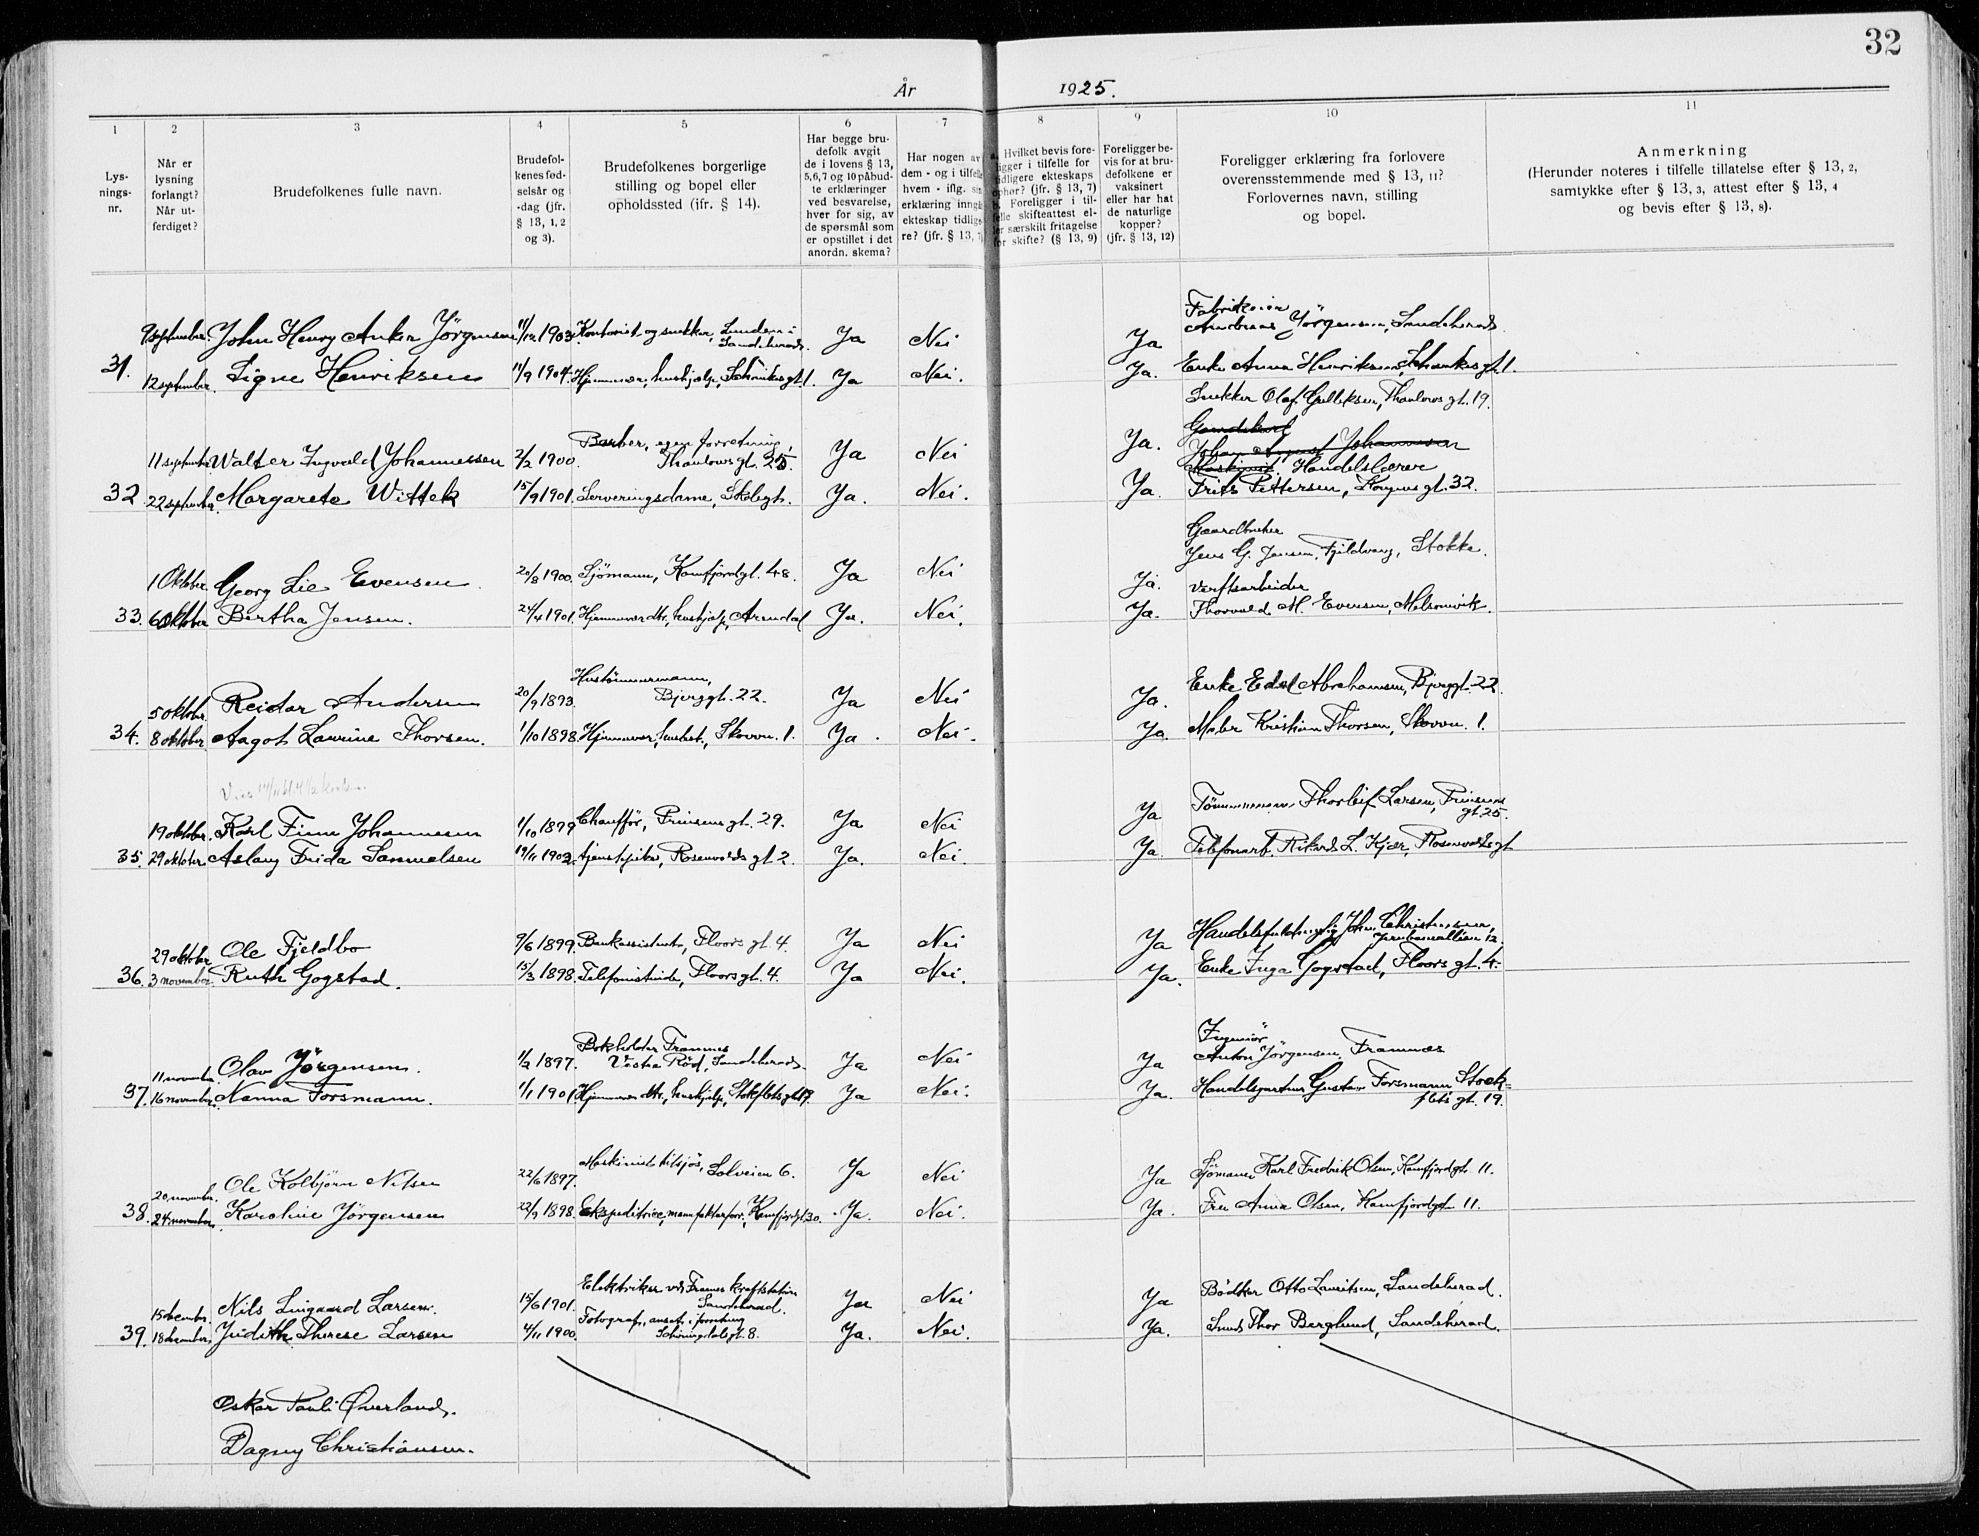 32
År 1925.
1 2 3 4 5 6 7 8 9 10 11
Lys-
nings-
nr.
Når er
lysning
forlangt?
Når ut-
ferdiget?
Brudefolkenes fulle navn.
Brudefol-
kenes fød-
selsår og
-dag (jfr.
§ 13, 1, 2
og 3).
Brudefolkenes borgerlige
stilling og bopel eller
opholdssted (ifr. § 14).
Har begge bru-
defolk avgit
de i lovens § 13,
5,6,7 og 10 påbud-
te erklæringer
ved besvarelse,
hver for sig, av
de spørsmål som
er opstillet i det
anordn. skema?
Har nogen av
dem - og i tilfelle
hvem - iflg. sin
erklæring inngåt
ekteskap tidlige-
re? (jfr. § 13, 7)
Hvilket bevis fore-
ligger i tilfelle for
tidligere ekteskaps
ophør? (jfr. § 13, 7)
Foreligger i til-
felle skifteattest el-
ler særskilt fritagelse
for skifte? (§ 13, 9)
Foreligger be-
vis for at bru-
defolkene er
vaksinert
eller har hat
de naturlige
kopper?
(jfr. § 13, 12)
Foreligger erklæring fra forlovere
overensstemmende med § 13, 11?
Forlovernes navn, stilling
og bopel.
Anmerkning
(Herunder noteres i tilfelle tillatelse efter § 13, 2,
samtykke efter § 13, 3, attest efter § 13, 4
og bevis efter § 13, 8).
Fabrikeier
9 september. John Henry Anker Jörgensen 11/12 1903 Kontorist og snekker, Lunden i Sandeherad. Ja Nei Ja Andreas Jörgensen, Sandeherad.
31. 12 september. Signe Henriksen 11/9 1904. Hjemmevær., hushjælp, Schankes gt. 1. Ja Nei. Ja. Enke Anna Henriksen, Schankes gt. 1.
Snekker Olaf Gulliksen, Thaulows gt. 19.
Gaardskarl
11 september Walter Ingvald Johannessen 2/2 1900. Barber, egen forretning, Thaulows gt. 25. Ja Nei Ja. Johan August Johannessen
Maskinist. Handelslærer
32. 22 september. Margarete Wittek 15/9 1901. Serveringsdame, Skolegt. Ja. Nei. Ja. Frits Pettersen, Kongens gt. 32.
Gaardbruker
Jens G. Jensen, Fjildvang, Stokke.
1 Oktober. Georg Lie Evensen. 20/8 1900. Sjömann, Kamfjordgt. 48. Ja Nei Ja. Verftsarbeider
33. 6 Oktober Bertha Jensen. 24/4 1901. Hjemmevær. dtr., hushjælp, Arendal Ja. Nei. Ja. Thorvald M. Evensen, Melsomvik.
5 oktober. Reidar Andersen 20/9 1893. Hustömmermann, Bjerggt. 22. Ja Nei Ja. Enke Edel Abrahamsen, Bjerggt. 22.
34. 8 oktober. Aagot Laurine Thorsen. 1/10 1898. Hjemmevær., Skovvn. 1. Ja. Nei. Ja. Maler Kristian Thorsen, Skovvn. 1.
19 oktober. Karl Finn Johannessen 1/10 1899 Chauffør, Prinsens gt. 29. Ja Nei Ja Tömmermann Thorleif Larsen, Prinsens gt. 25.
35. 29 oktober Aslaug Frida Samuelsen 19/11 1902. tjenestepike, Rosenvolds gt 2. Ja. Nei. Ja. Telefonarb. Rikard L. Kjær, Rosenvolds gt
29 oktober Ole Fjeldbo 9/6 1899 Bankassistent, Floors gt. 4. Ja Nei Ja Handelsfuldmegtig John Christensen, Jernbanealléen 12.
36. 3 november. Ruth Gogstad. 15/3 1898. Telefonistinde, Floors gt. 4. Ja Nei. Ja. Enke Inga Gogstad, Floors gt. 4.
Ingeniör
11 novembe. Olav Jörgensen. 1/2 1897. Bokholder Framnes Vestra Röd, Sandeherad. Ja Nei Ja Anton Jörgensen, Framnæs
37. 16 november. Nanna Forsmann. 1/1 1901. Hjemmevær. dtr., huskjælp, Stokflets gt. 19. Ja Nei. Ja. Handelsgartner Gustav Forsmann Stock-
flets gt. 19.
20 november. Ole Kolbjörn Nilsen 22/6 1897. Maskinist tilsjös, Solveien 6. Ja Nei Ja Sjömann Karl Fredrik Olsen, Kamfjordgt. 11.
38. 24 november. Karoline Jörgensen 22/9 1898. Ekspeditrice, manufakturfor., Kamfjordgt. 30. Ja. Nei. Ja. Fru Anna Olsen, Kamfjordgt 11.
15 december. Nils Lingaard Larsen. 15/6 1901. Elektriker ved Framnes kraftstation Sandeherad. Ja Nei Ja Bödker Otto Lauritsen, Sandeherad.
39. 18 december. Judith Therese Larsen 4/11 1900. Fotograf, ansat i forretning Schiringsalsgt. 8. Ja. Nei. Ja. Smed Thor Berglund, Sandeherad.
Oskar Pauli Øverland.
Dagny Christiansen.